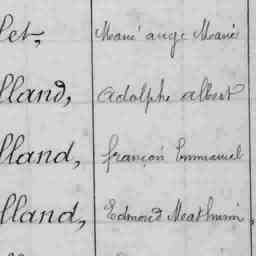 let, Marie ange Marie
lland, adolphe albert
lland, françois Emmanuel
lland, Edmond Mathurin,